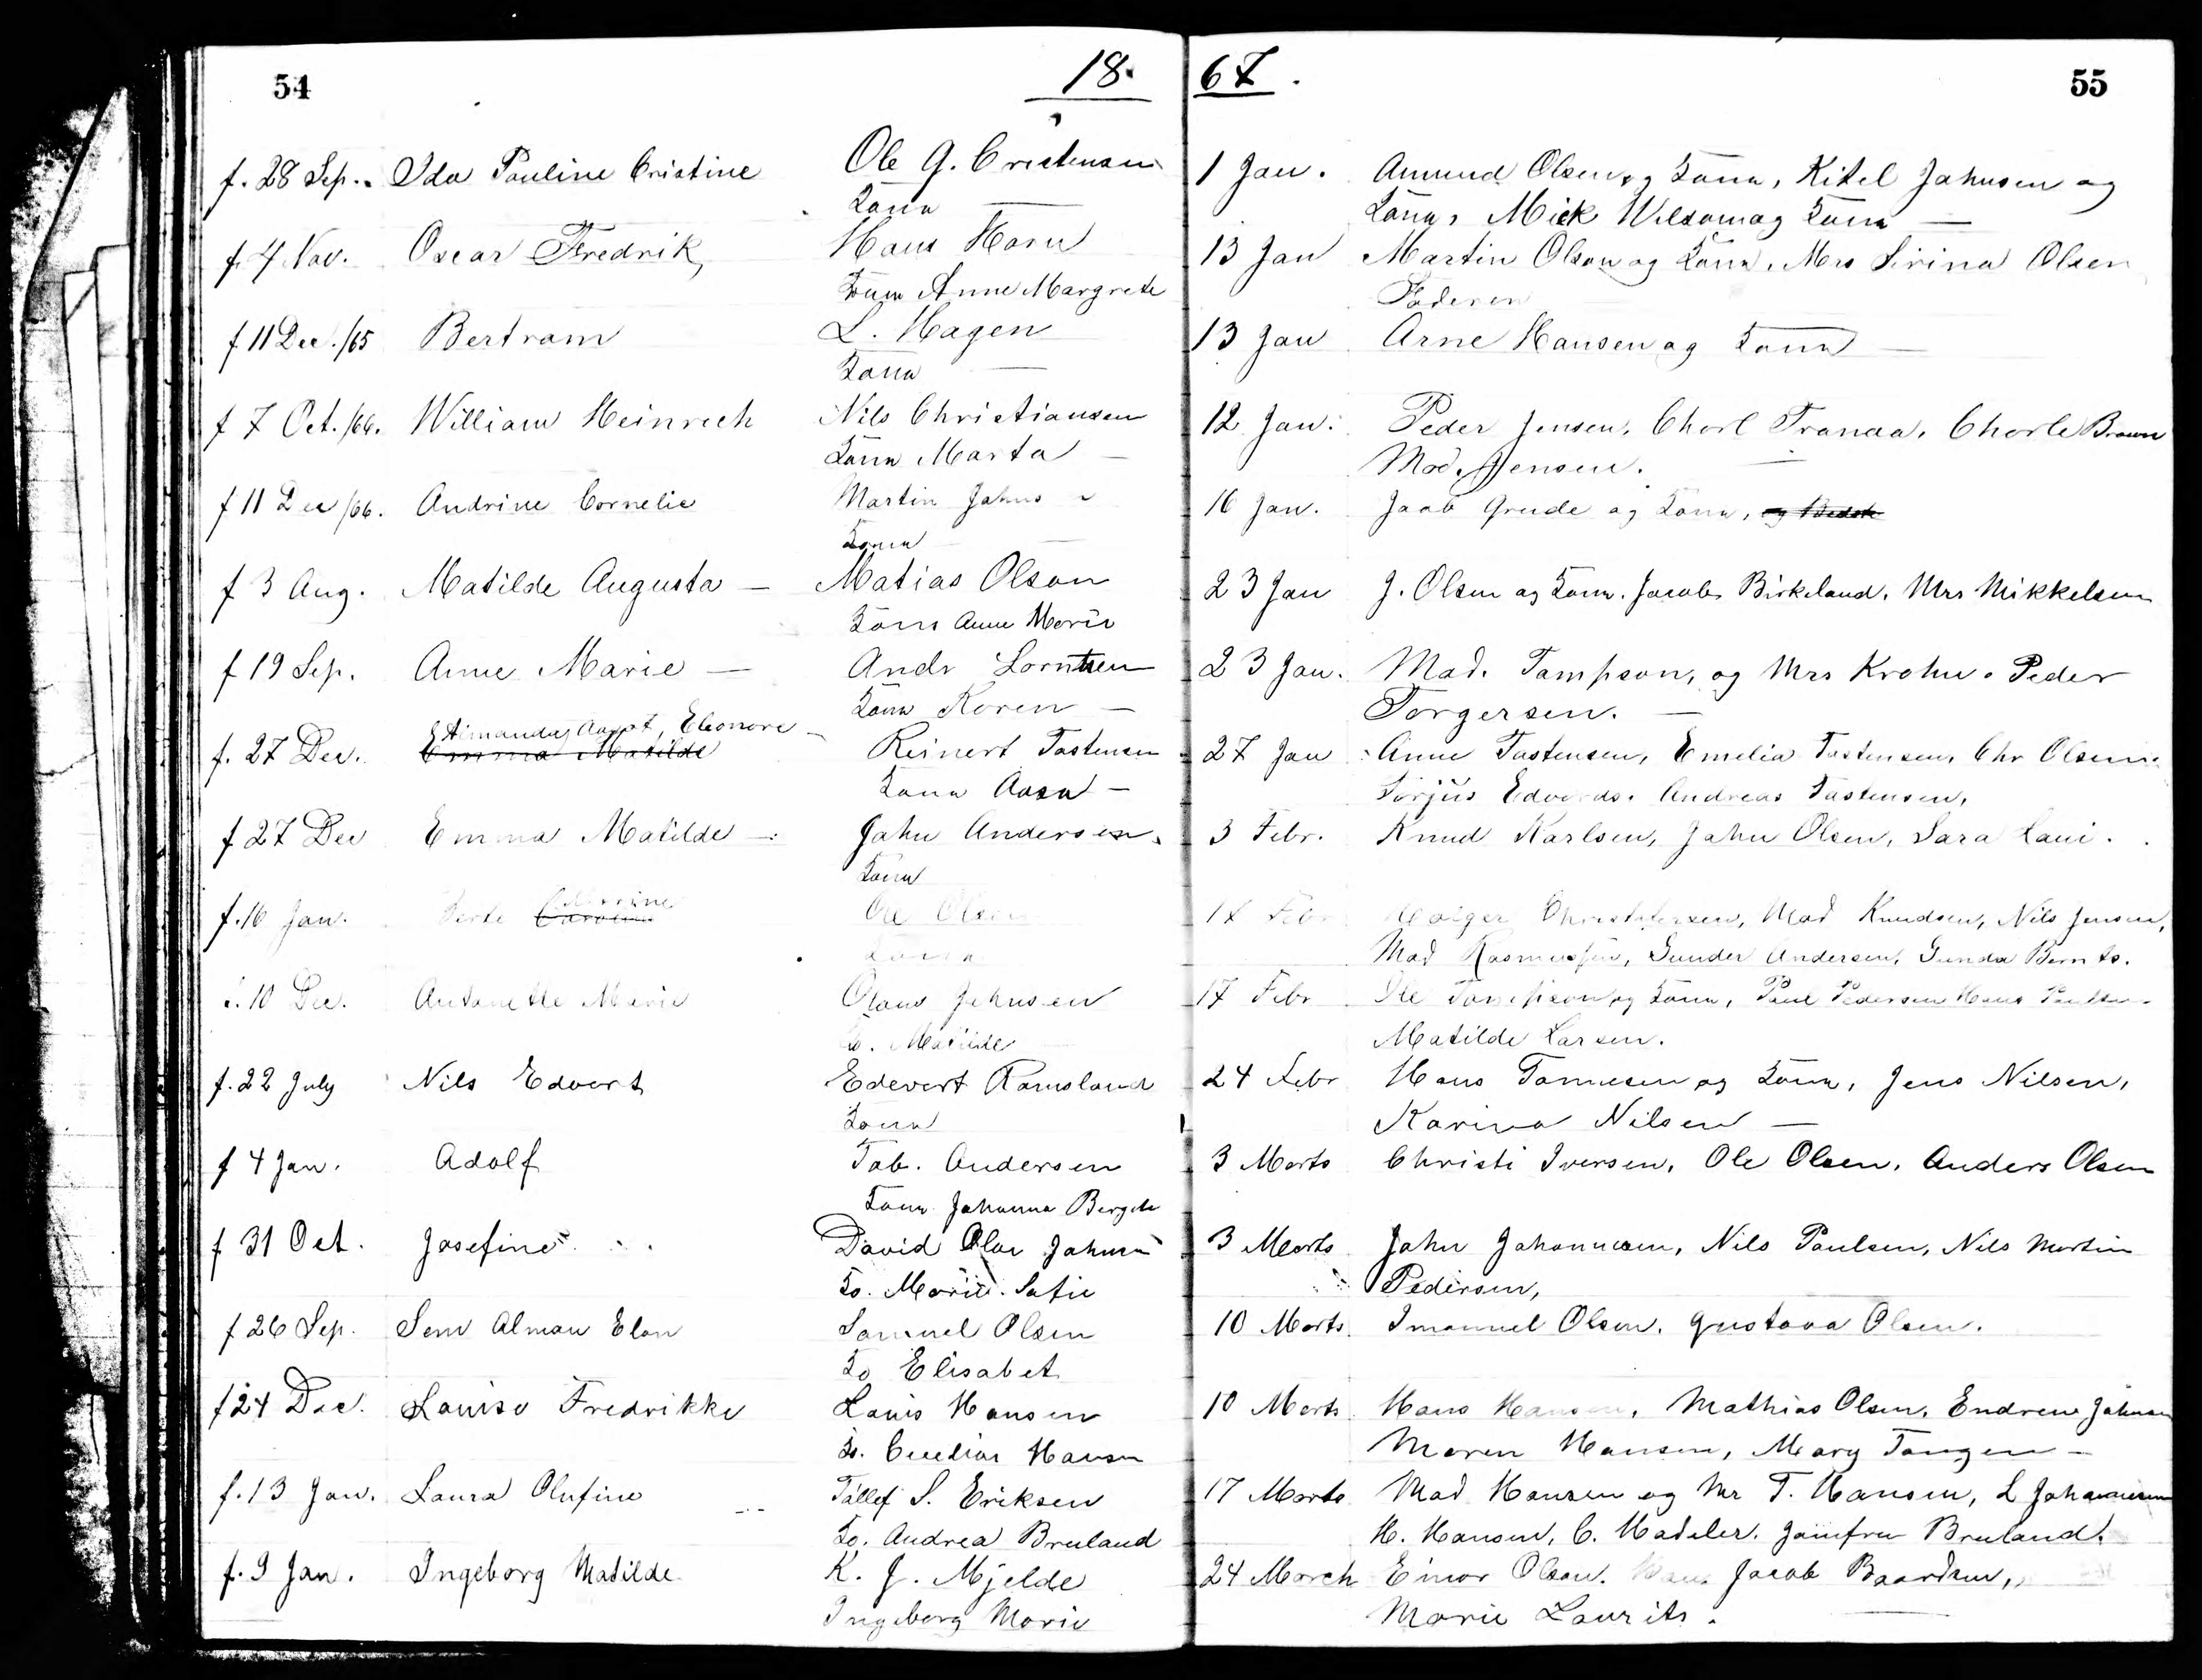 54
18.
67.
55
f. 28 Sep. Ida Pauline Cristine Ole G. Cristensen 1 Jan. Amund Olsen og Kona, Kitel Johnsen og
Kona Kona, Mick Wilson og Kona
f. 4 Nov. Oscar Fredrik Hans Horn 13 Jan Martin Olson og Kona. Mrs Sirina Olsen
Kona Anne Margrete Faderen
f 11 Dec. /65 Bertram L. Hagen 13 Jan Arne Hansen og Kona
Kona
f 7 Oct. /66. William Heinrich Nils Christiansen 12 Jan. Peder Jensen, Chorl Chorle Brown
Kona Marta Mad. Jensen.
f 11 Dec /66. Andrine Cornelie Martin Johns 16 Jan. Jaab Grude og Kona,
Kona
f 3 Aug. Matilde Augusta Matias Olson 23 Jan J. Olsen og Kona. Jacob Birkeland. Mrs Mikkelsen
Kona Anne Marie
f 19 Sep. Anne Marie Andr Lorntsen 23 Jan. Mad. Tampson, og Mrs Krohn. Peder
Kona Karen Torgersen.
Eleonore
f. 27 Dec. Emma Matilde Reinert Tastensen 27 Jan Anne Tastensen, Emelia Tastensen, Chr Olsen.
Kona Aasa Andreas Tastensen,
f 27 Dec Emma Matilde John Andersen. 3 Febr. Knud Karlsen, John Olsen, Sara
Kona
f. 16 Jan. Ole Olsen 17 Febr Christofersen, Mad Knudsen, Nils Jensen,
Kona Mad Rasmussen, Gunder Andersen, Gunda Bernts.
f. 10 Dec. Antonette Marie Olaus Johnsen 17 Febr Ole Tompson og Kona, Paul Pedersen
Ko. Matilde Matilde Larsen.
f. 22 July Nils Edvert Edevert Ramsland 24 Febr Hans Tonnesen og Kona, Jens Nilsen,
Kona Karina Nilsen
f 4 Jan. Adolf Tob. Andersen 3 Marts Christi Iversen, Ole Olsen, Anders Olsen
Kona Johanna Bergete
f 31 Oct. Josefine David Olai Johnsen 3 Marts John Johannesen, Nils Paulsen, Nils Martin
Ko. Marie Sofie Pedersen,
f 26 Sep. Sem Alman Elon Samuel Olsen 10 Marts. Imanuel Olsen. Gustava Olsen.
Ko Elisabet
f 24 Dec. Louise Fredrikke Louis Hansen 10 Marts Hans Hansen, Mathias Olsen, Johnsen
Ko. Hansen Maren Hansen, Mary Tangen
f. 13 Jan. Laura Olufine Tallef S. Eriksen 17 Marts Mad Hansen og Mr T. Hansen, L Johannesen
Ko. Andrea Bruland H. Hansen, C. Jomfru Bruland.
f. 9 Jan. Ingeborg Matilde K. J. Mjelde 24 March Einor Olson. Jacob Baardsen,
Ingeborg Marie Marie Laurits.